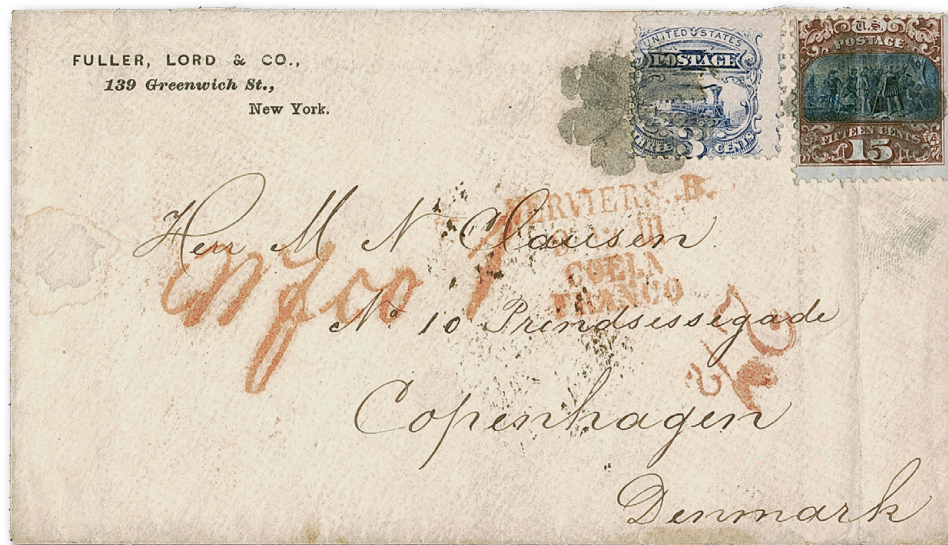 FULLER, LORD & CO.,
139 Greenwich St.,
New York.
UNITED STATES
POSTAGE
THREE 3 CENTS
U.S.
POSTAGE
FIFTEEN CENTS
15
VERVIERS. B.
COELN
FRANCO
Herr M N Clausen
Wfco 1
No 10 Prindsessegade
Copenhagen
Denmark